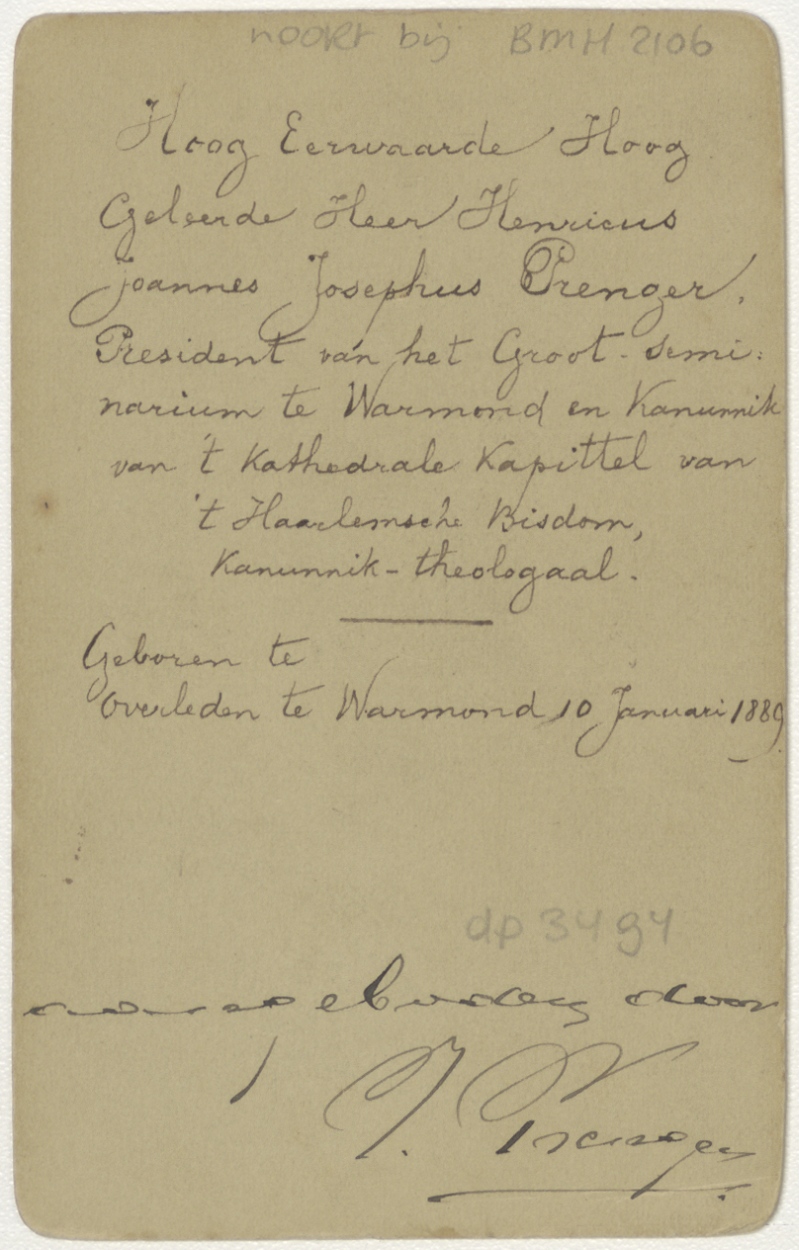 hoort bij BMH 2106
Hoog Eerwaarde Hoog
Geleerde Heer Henricus
Joannes Josephus Prenger,
President van het Groot-Semi:
narium te Warmond en Kanunnik
van 't Kathedrale Kapittel van
't Haarlemsche Bisdom,
Kanunnik-theologaal.
Geboren te
Overleden te Warmond 10 Januari 1889
dp 3494
aangeboden door
J. Prenger